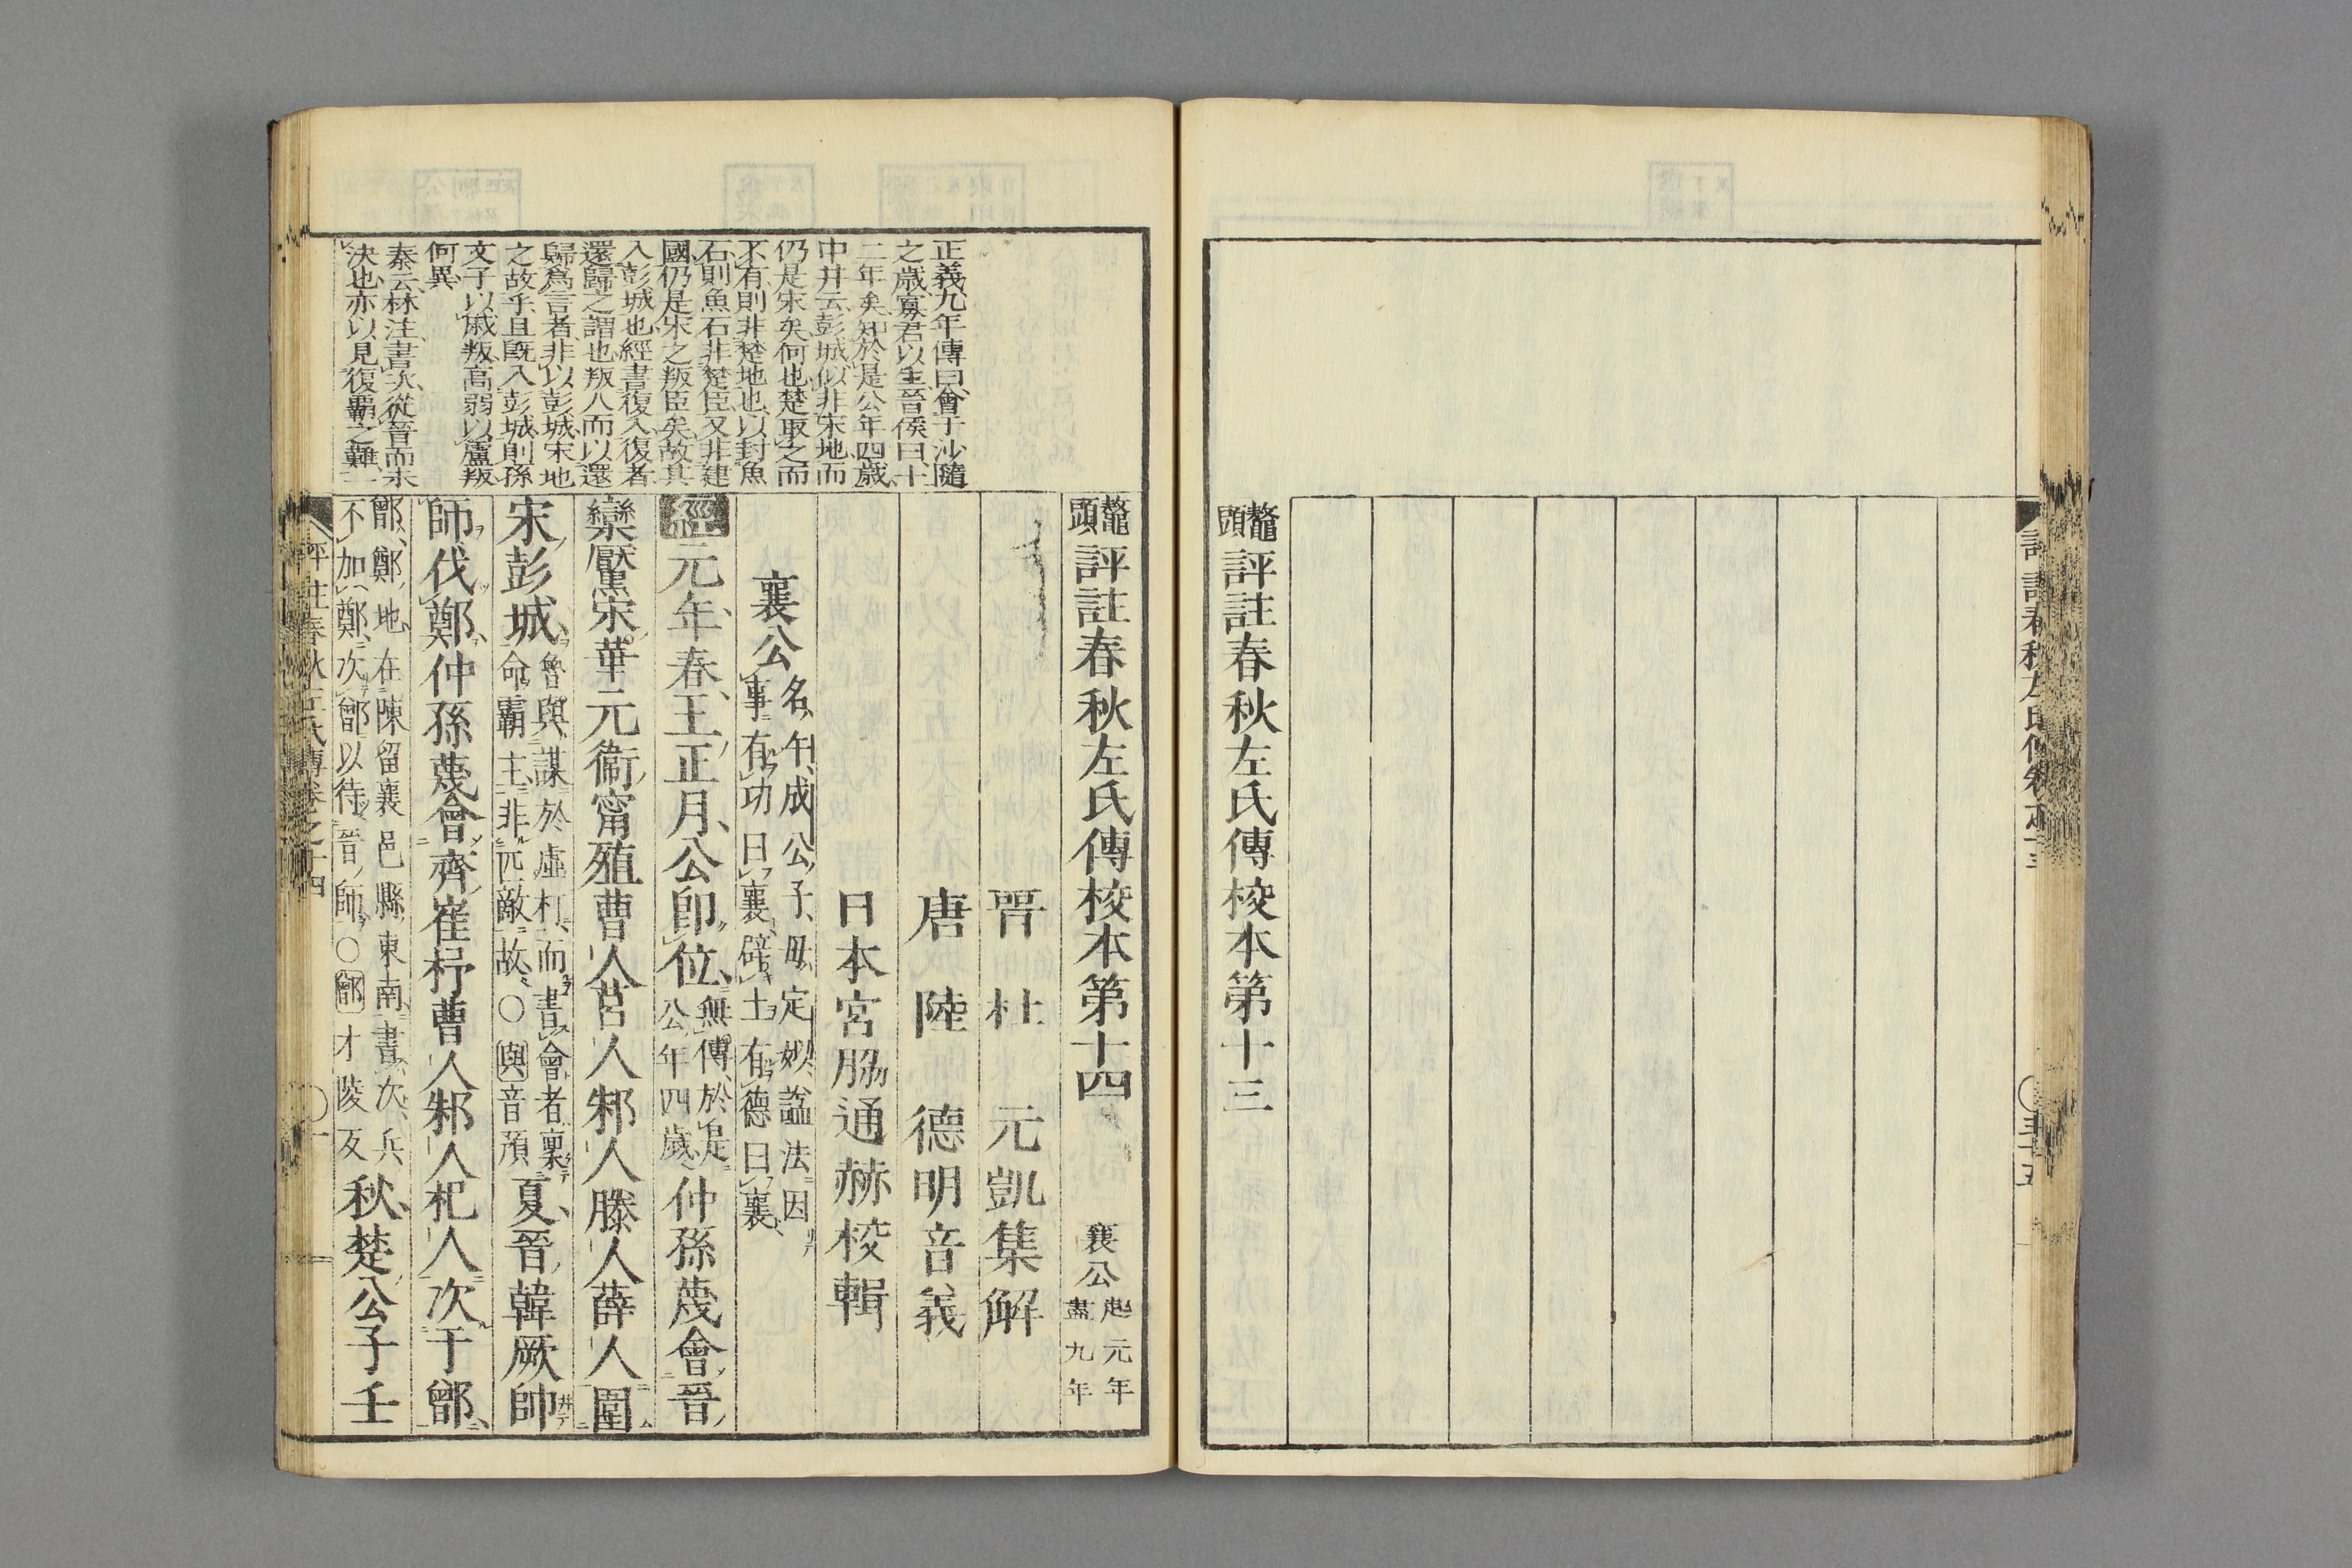 鼇頭評註春秋左氏傳校本第十三
鼇頭評註春秋左氏傳校本第十四　襄公起元年盡九年
晉　杜　元凱集解
唐　陸　德明音義
日本宮脇通赫校輯
襄公名午成公子母定姒謚法因事有功曰襄辟土有德曰襄
經元年春王正月公卽位無傳於是公年四歲仲孫蔑會晉
欒黶宋華元衞甯殖曹人莒人邾人滕人薛人圍
宋彭城魯與謀於虛朾而書會者稟命霸主非匹敵故○與音預夏晉韓厥帥
師伐鄭仲孫蔑會齊崔杼曹人邾人杞人次于鄫
鄫鄭地在陳留襄邑縣東南書次兵不加鄭次鄫以待晉師○鄫才陵反秋楚公子壬
正義九年傳曰會于沙隨
之歲寡君以生晉侯曰十
二年矣知於是公年四歲
中井云彭城似非宋地而
仍是宋矣何也楚取之而
不有則非楚地也以封魚
石則魚石非楚臣又非建
國仍是宋之叛臣矣故其
入彭城也經書復入復者
還歸之謂也叛人而以還
歸爲言者非以彭城宋地
之故乎且旣入彭城則孫
文子以戚叛高弱以盧叛
何異
秦云林注書次從晉而未
決也亦以見復霸之難
評註春秋左氏傳卷之十四　一